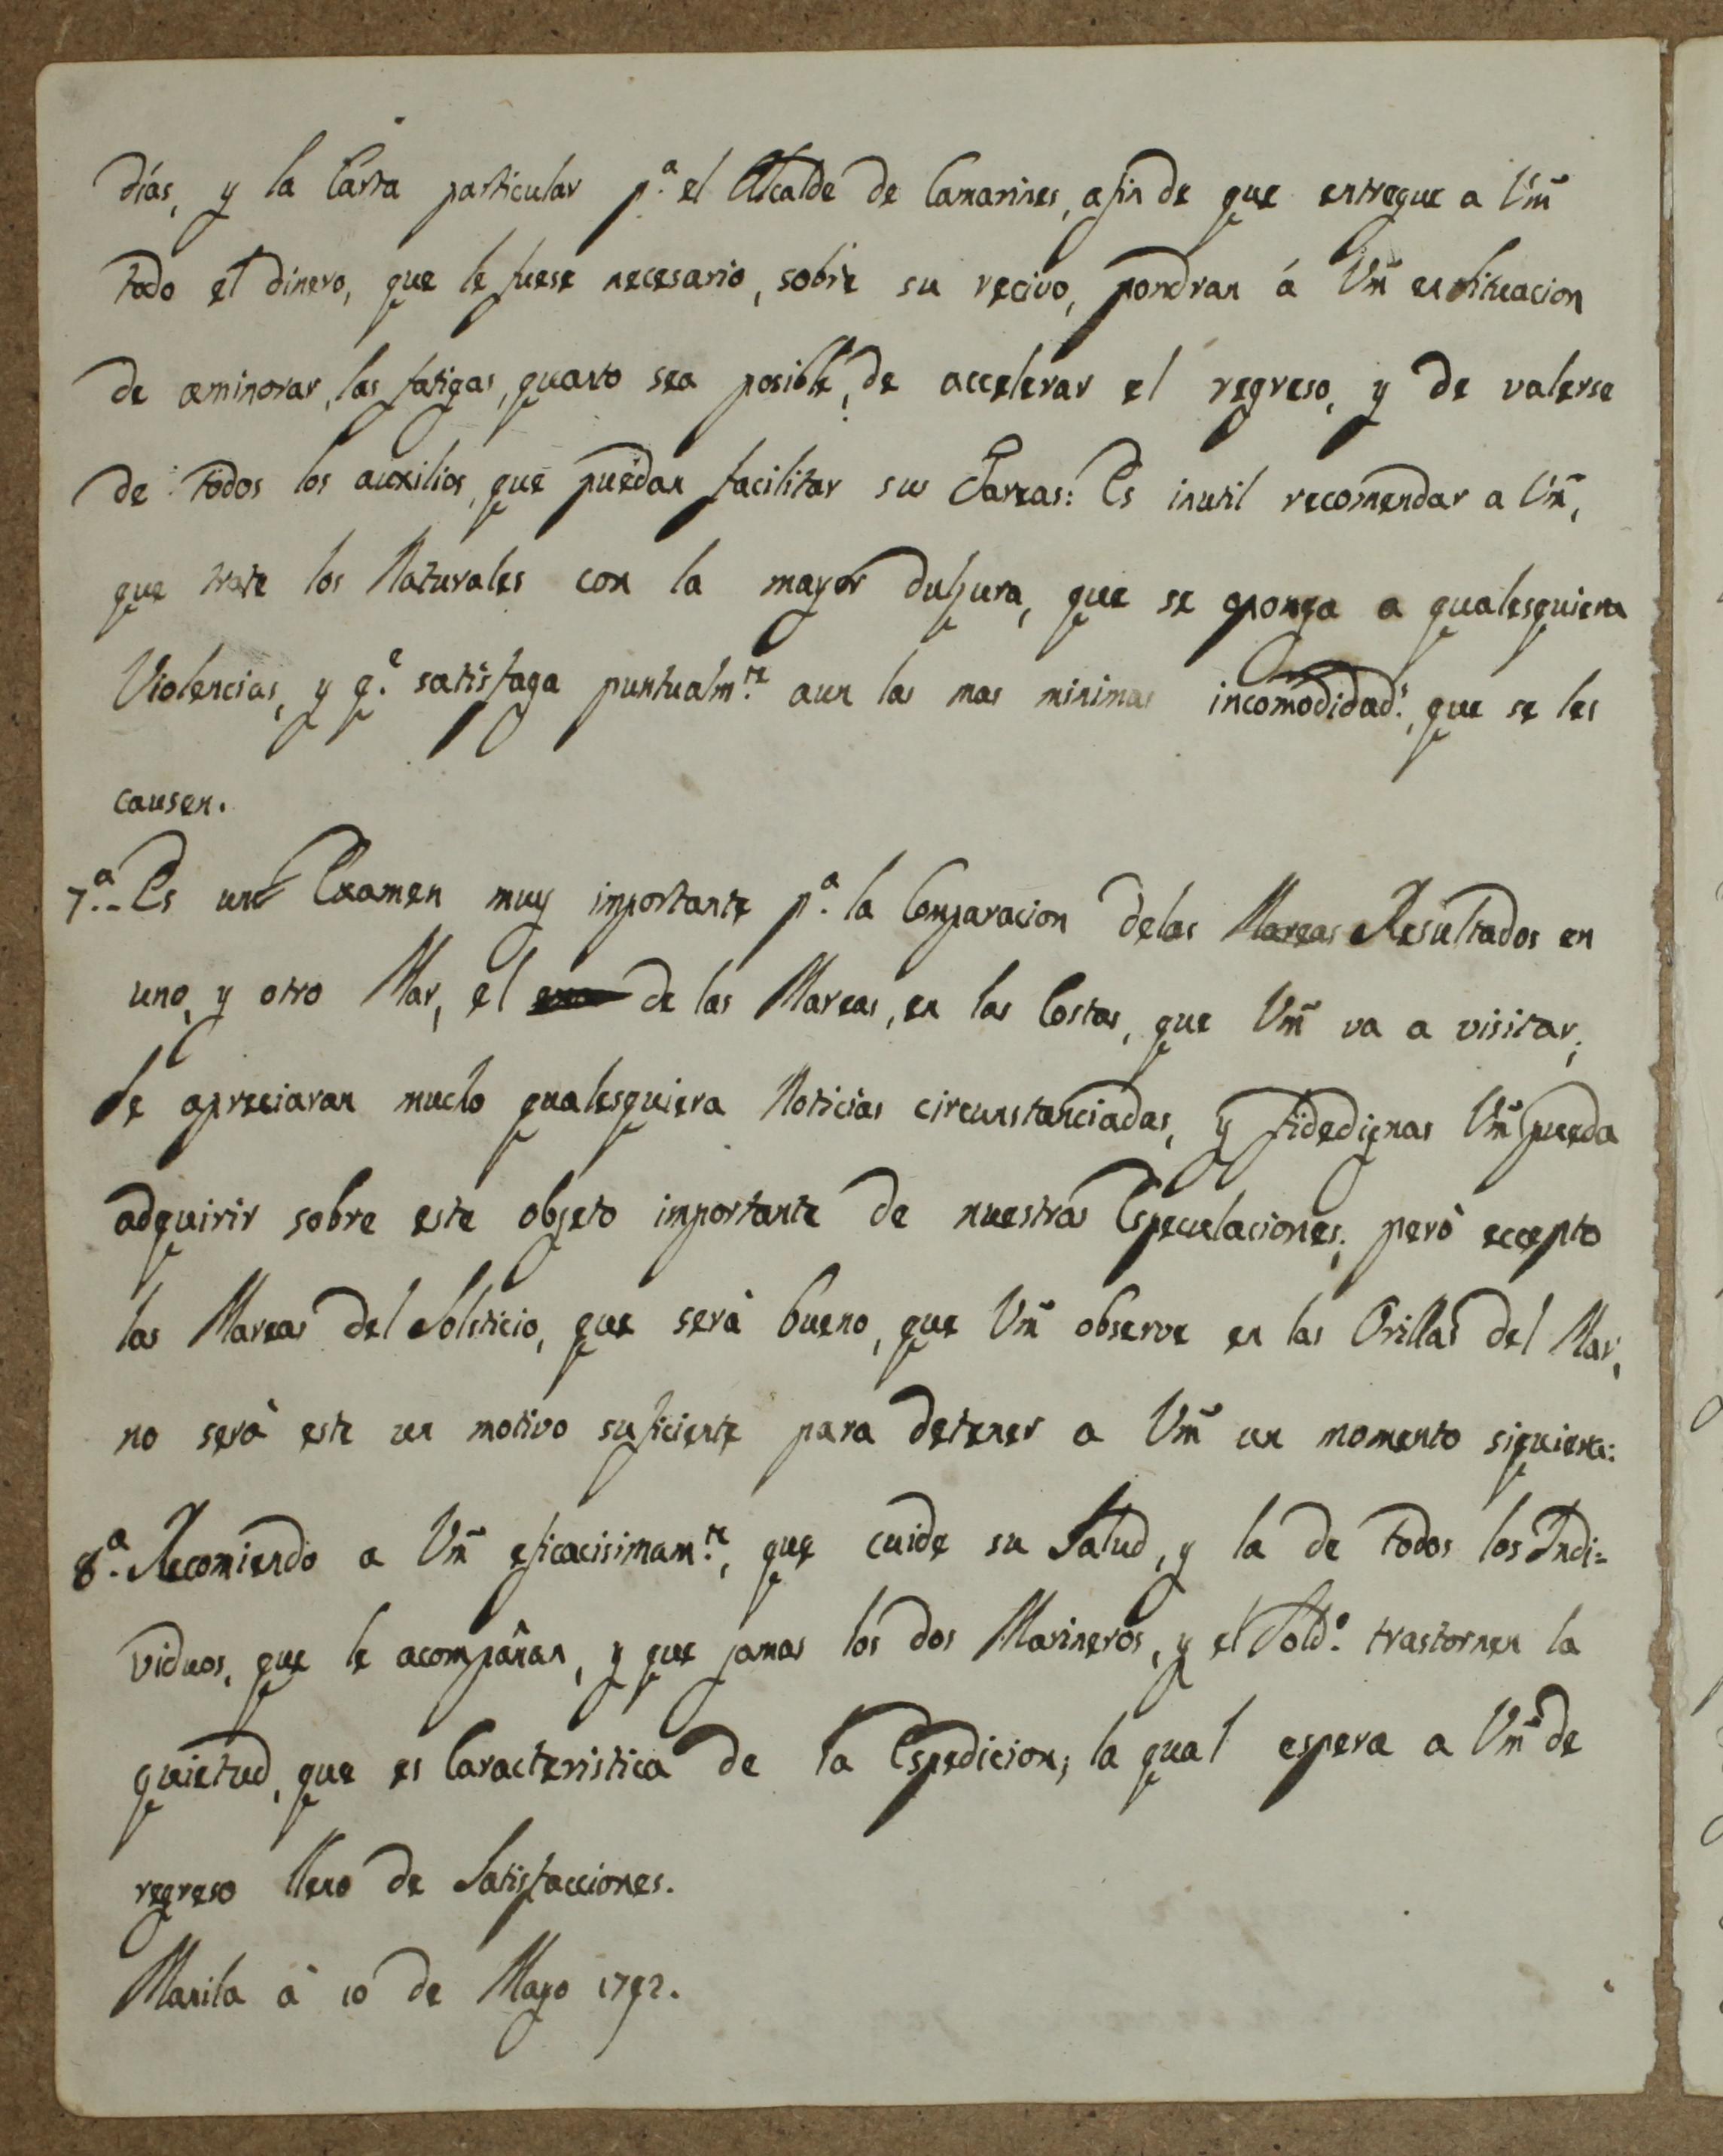 dias, y la Carta particular p.ª el Alcalde de Camarines, a fin de que entregue a Vm̃
todo el dinero, que le fuese necesario, sobre su recivo, pondran á Vm̃ en situacion
de aminorar las fatigas, quanto sea posible, de accelerar el regreso, y de valerse
de todos los auxilios, que puedan facilitar sus Tareas: Es inutil recomendar a Vm̃,
que trate los Naturales con la mayor dulzura, que se oponga a qualesquiera
Violencias, y q.e satisfaga puntualm.te aun las mas minimas incomodidad.s, que se les
causen.
7.ª- Es un Examen muy importante p.ª la Comparacion delas Mareas Resultados en
uno, y otro Mar, el de las Mareas, en las Costas, que Vm̃ va a visitar;
Se apreciaran mucho qualesquiera Noticias circunstanciadas, y fidedignas Vm̃ pueda
adquirir sobre este objeto importante de nuestras Especulaciones; però eccepto
las Mareas del Solsticio, que serà bueno, que Vm̃ observe en las Orillas del Mar,
no serà este un motivo suficiente para detener a Vm̃ un momento siquiera:
8.ª Recomiendo a Vm̃ eficacisimam.te, que cuide su Salud, y la de todos los Indi=
viduos, que le acompañan, y que jamas los dos Marineros, y el Sold.º trastornen la
quietud, que es Caracteristica de la Espedicion; la qual espera a Vm̃ de
regreso lleno de Satisfacciones.
Manila à 10 de Mayo 1792.